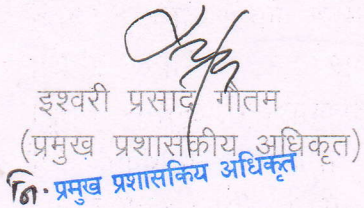 इश्वरी प्रसाद गौतम
(प्रमुख प्रशासकीय अधिकृत)
नि. प्रमुख प्रशासकिय अधिकृत